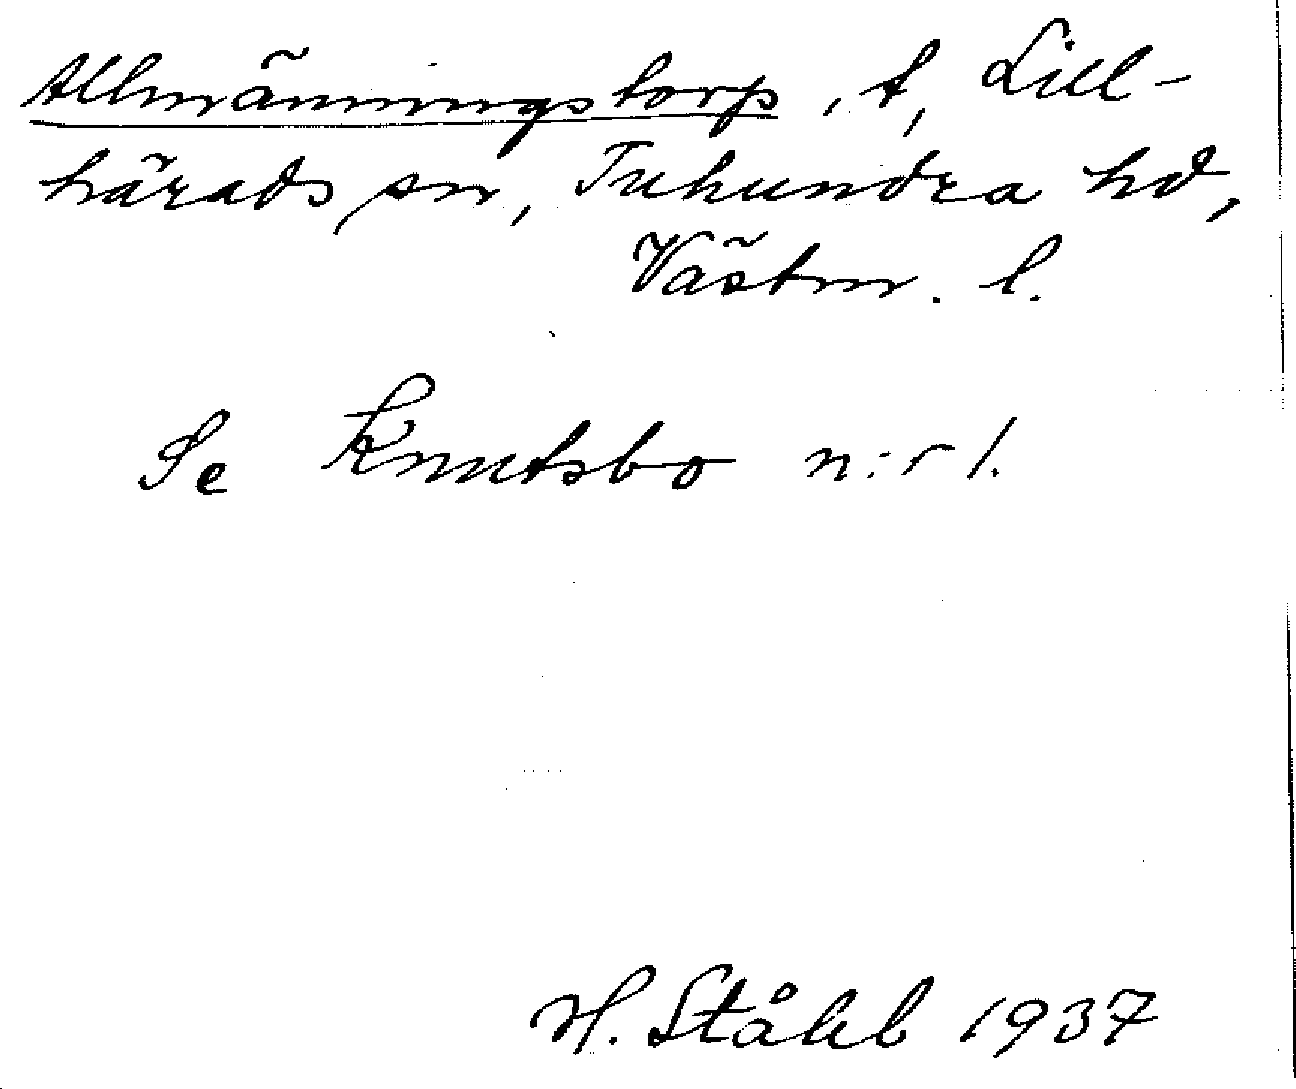 Allmänningstorp, t, Lill-
härads sn, Tuhundra hd,
Västm. l.
Se Knutsbo n:r 1.
H. Ståhl 1937